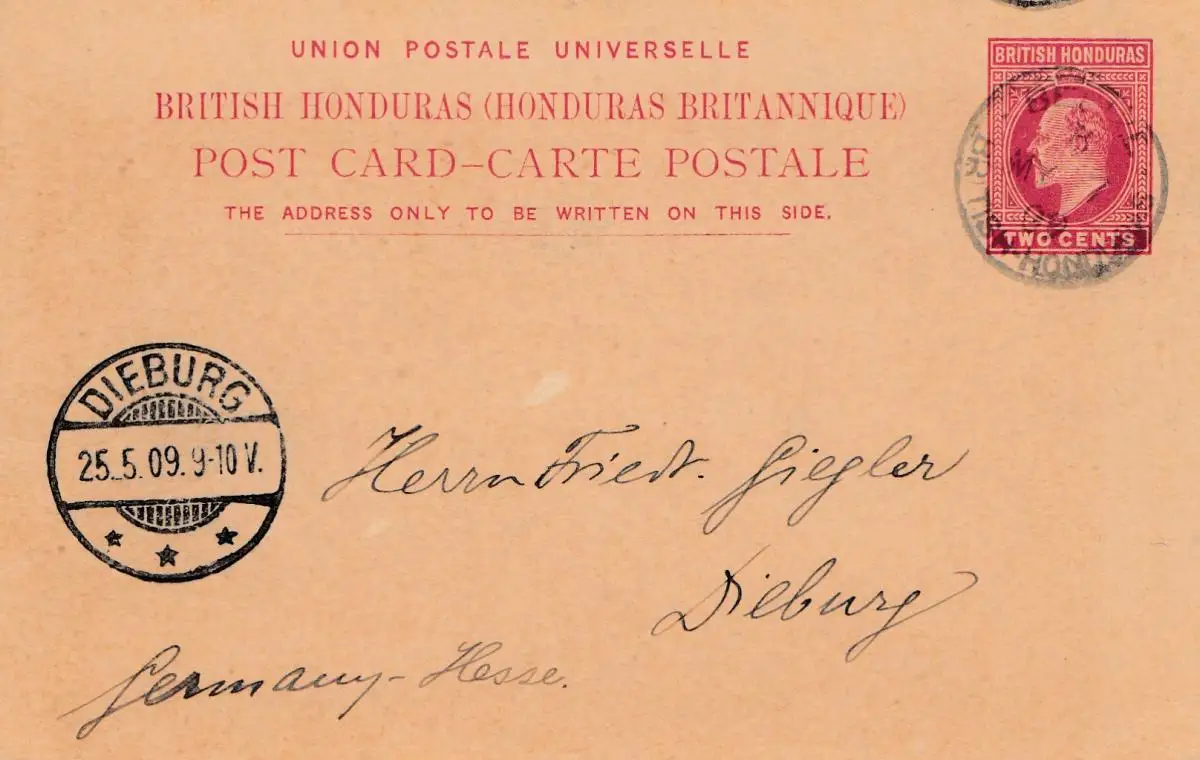 UNION POSTALE UNIVERSELLE
BRITISH HONDURAS (HONDURAS BRITANNIQUE)
POST CARD–CARTE POSTALE
THE ADDRESS ONLY TO BE WRITTEN ON THIS SIDE.
BRITISH HONDURAS
TWO CENTS
DIEBURG
25.5.09. 9-10 V.
Herrn Friedr. Giegler
Dieburg
Germany - Hesse.